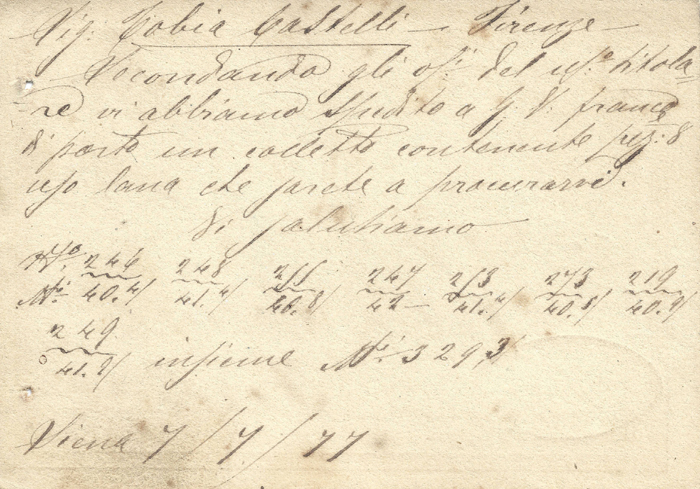 Sig: Tobia Castelli – Firenze
Secondando gli del titola=
=re vi abbiamo spedito a franco
di porto un colletto contenente pez: 8
uso lana che farete a procurarvi.
Vi salutiamo
No. 246 248 247 273 219
Mi. 40.4/ 41.4/ 46.8/ 42 – 41.4/ 40.8/ 40.9/
249
41.9/ insieme Mi. 329,3/
Siena 7/7/77